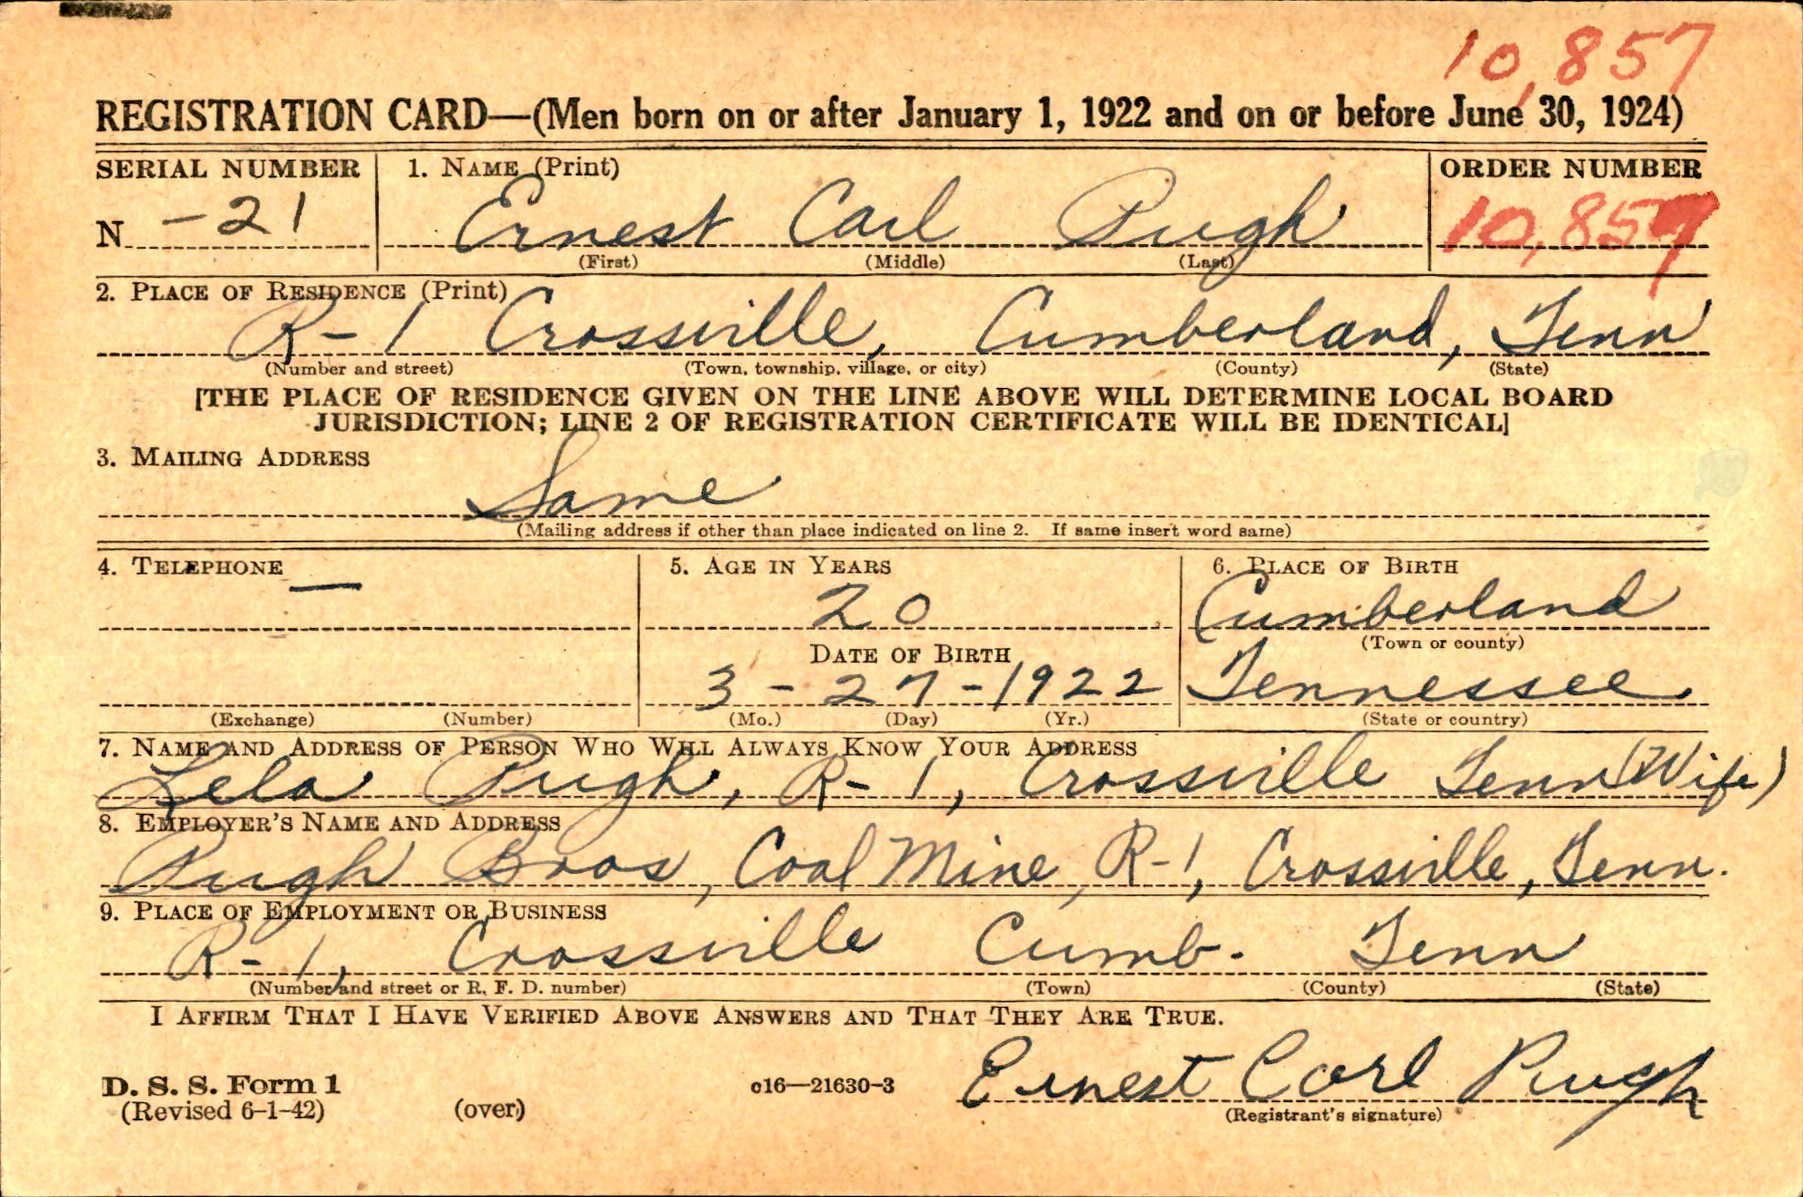 10,857
REGISTRATION CARD—(Men born on or after January 1, 1922 and on or before June 30, 1924)
SERIAL NUMBER 1. NAME (Print) ORDER NUMBER
N -21 Ernest Carl Pugh 10,857
(First) (Middle) (Last)
2. PLACE OF RESIDENCE (Print)
R-1 Crossville, Cumberland, Tenn
(Number and street) (Town, township, village, or city) (County) (State)
[THE PLACE OF RESIDENCE GIVEN ON THE LINE ABOVE WILL DETERMINE LOCAL BOARD
JURISDICTION; LINE 2 OF REGISTRATION CERTIFICATE WILL BE IDENTICAL]
3. MAILING ADDRESS
Same
(Mailing address if other than place indicated on line 2. If same insert word same)
4. TELEPHONE 5. AGE IN YEARS 6. PLACE OF BIRTH
— 20 Cumberland
(Town or county)
DATE OF BIRTH
3-27-1922 Tennessee.
(Exchange) (Number) (Mo.) (Day) (Yr.) (State or country)
7. NAME AND ADDRESS OF PERSON WHO WILL ALWAYS KNOW YOUR ADDRESS
Lela Pugh, R-1, Crossville Tenn (Wife)
8. EMPLOYER'S NAME AND ADDRESS
Pugh Bros, Coal Mine, R-1, Crossville, Tenn.
9. PLACE OF EMPLOYMENT OR BUSINESS
R-1, Crossville Cumb. Tenn
(Number and street or R. F. D. number) (Town) (County) (State)
I AFFIRM THAT I HAVE VERIFIED ABOVE ANSWERS AND THAT THEY ARE TRUE.
D. S. S. Form 1 c16—21630-3 Ernest Carl Pugh
(Revised 6-1-42) (over) (Registrant's signature)